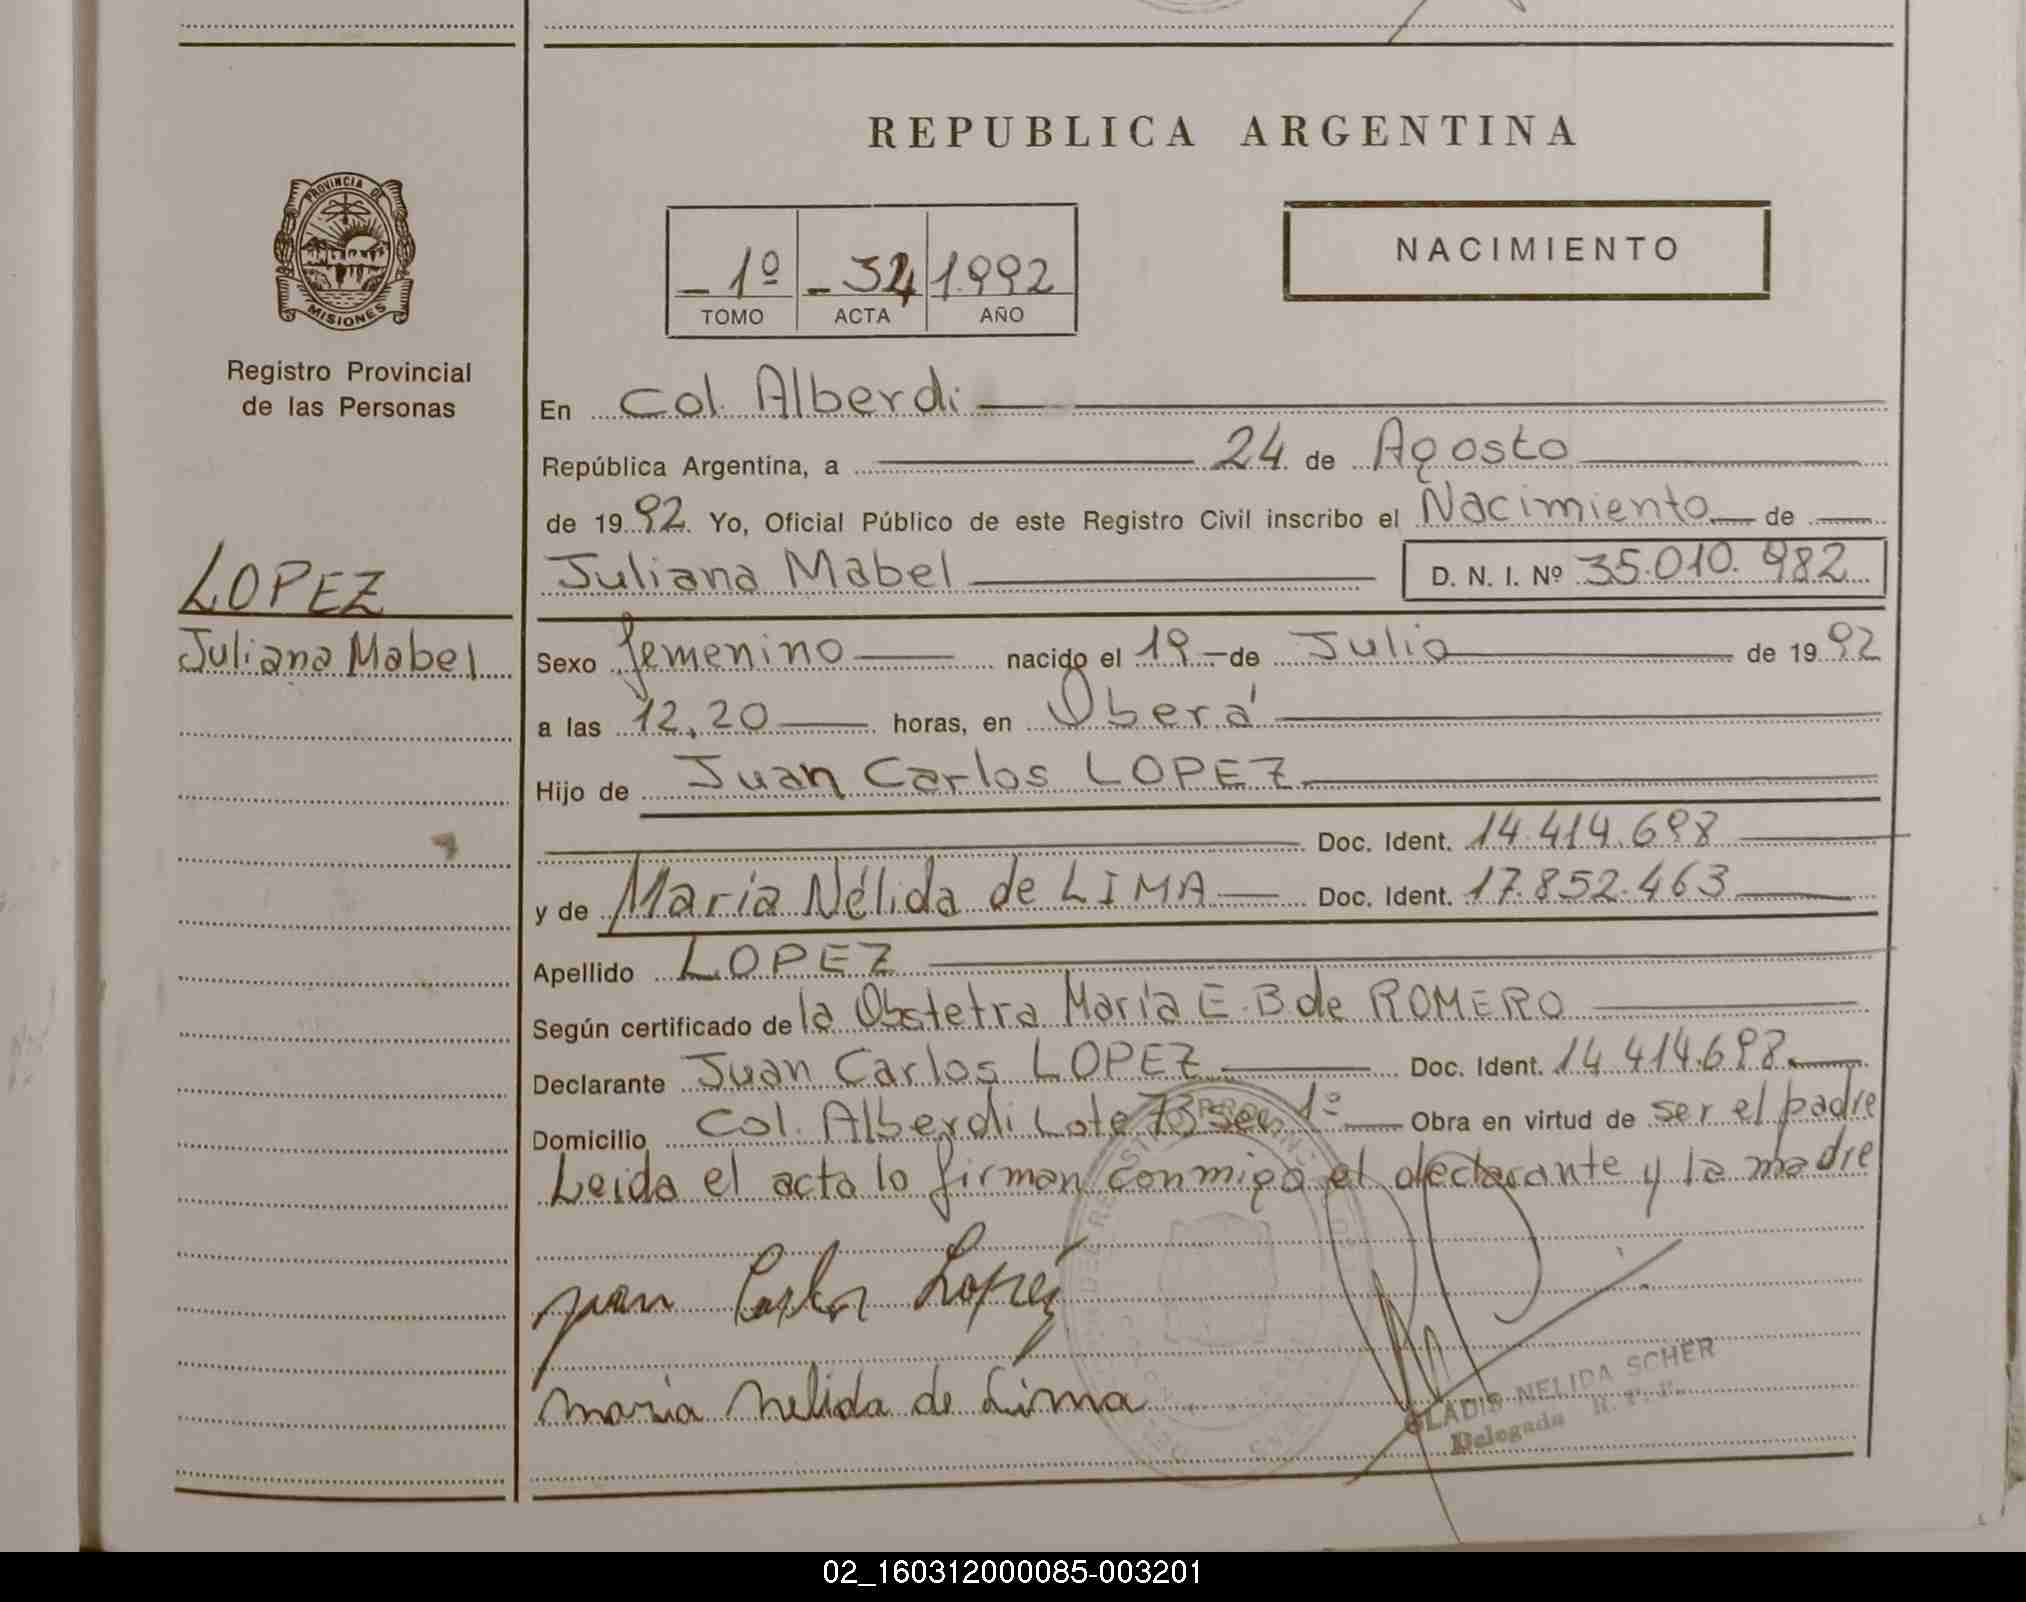 REPUBLICA ARGENTINA
PROVINCIA DE
MISIONES
Registro Provincial
de las Personas
1º 34 1.992
TOMO ACTA AÑO
NACIMIENTO
En Col. Alberdi
República Argentina, a 24 de Agosto
de 19 92 Yo, Oficial Público de este Registro Civil inscribo el Nacimiento de
LOPEZ
Juliana Mabel
Juliana Mabel D. N. I. Nº 35.010.982
Sexo femenino nacido el 19 de Julio de 19 92
a las 12,20 horas, en Oberá
Hijo de Juan Carlos LOPEZ
Doc. Ident. 14.414.698
y de María Nélida de LIMA Doc. Ident. 17.852.463
Apellido LOPEZ
Según certificado de la Obstetra María E. B de ROMERO
Declarante Juan Carlos LOPEZ Doc. Ident. 14.414.698
Domicilio Col. Alberdi Lote 73 sec 1º Obra en virtud de ser el padre
Leida el acta lo firman conmigo el declarante y la madre
juan Carlos Lopez
maria nelida de Lima
GLADIS NELIDA SCHER
Delegada R. P. P.
02_160312000085-003201